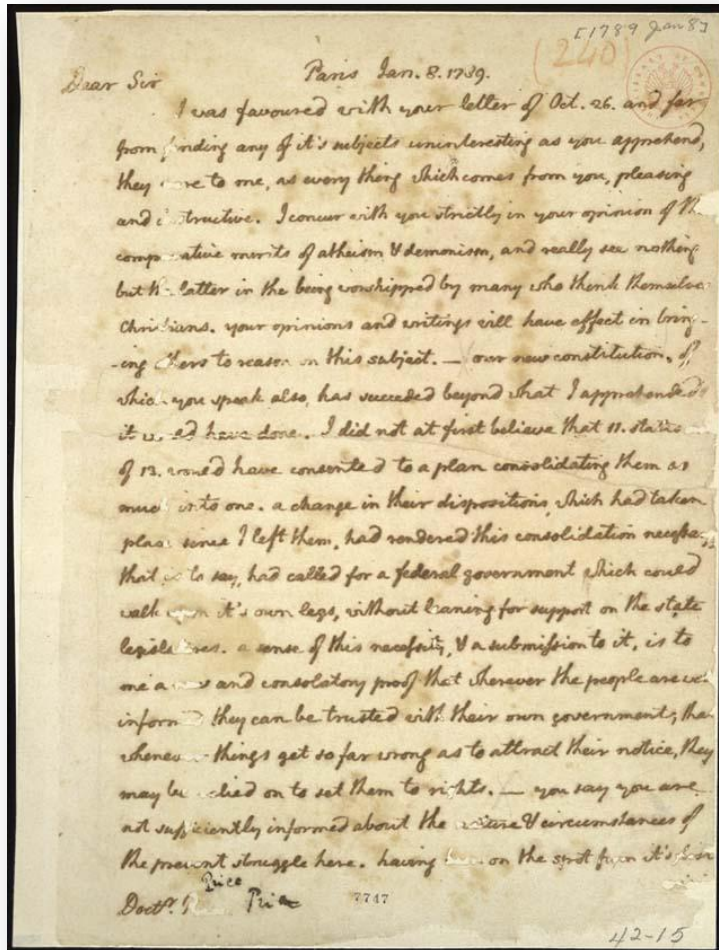 [1789 Jan 8]
(240)
Paris Jan. 8. 1789.
Dear Sir
I was favoured with your letter of Oct. 26. and far
from finding any of it's subjects uninteresting as you apprehend,
they were to me, as every thing which comes from you, pleasing
and instructive. I concur with you strictly in your opinion of the
comparative merits of atheism & demonism, and really see nothing
but the latter in the being worshipped by many who think themselves
Christians. your opinions and writings will have effect in bring-
-ing others to reason on this subject. — our new constitution, of
which you speak also, has succeeded beyond what I apprehended
it would have done. I did not at first believe that 11. states
of 13. would have consented to a plan consolidating them as
much into one. a change in their dispositions, which had taken
place since I left them, had rendered this consolidation necessary,
that is to say, had called for a federal government which could
walk upon it's own legs, without leaning for support on the state
legislatures. a sense of this necessity, & a submission to it, is to
me a new and consolatory proof that wherever the people are well
informed they can be trusted with their own government; that
whenever things get so far wrong as to attract their notice, they
may be relied on to set them to rights. — you say you are
not sufficiently informed about the nature & circumstances of
the present struggle here. having been on the spot from it's first
Price
Doctr. Price
7747
42-15